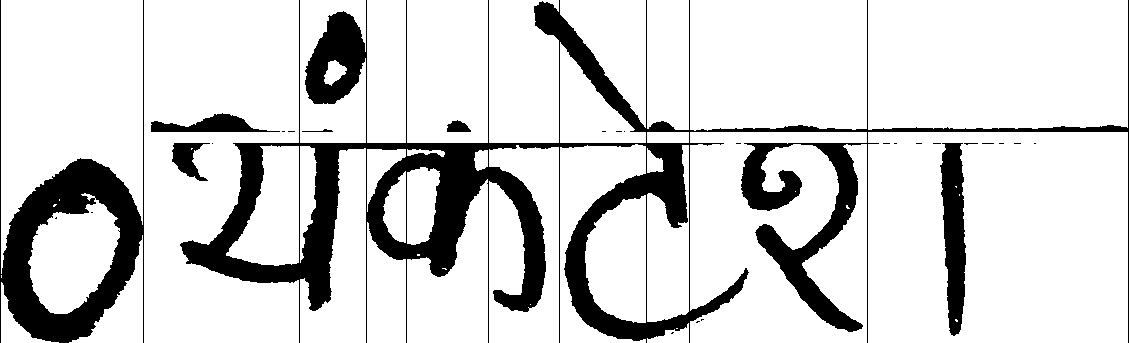 व्यंकटेश